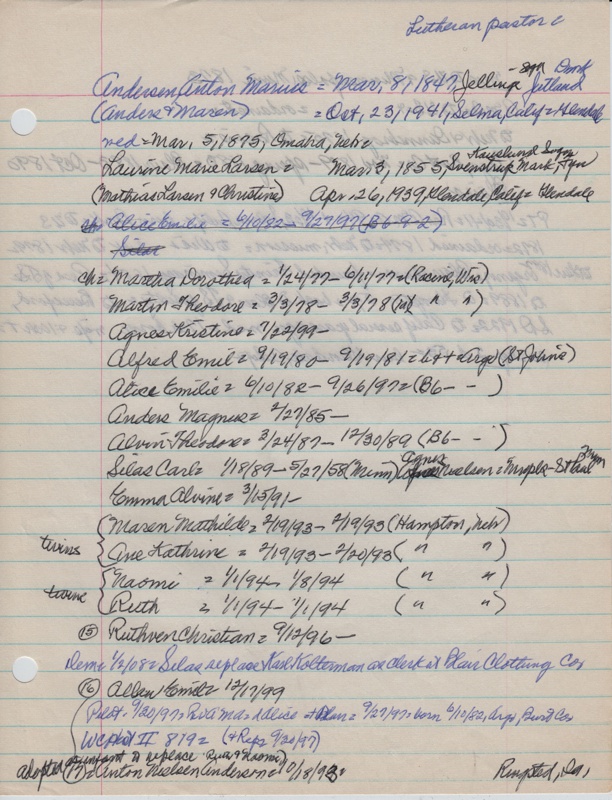 Lutheran pastor
Andersen, Anton Marius = Mar, 8, 1847, Jelling, Jutland
(Anders & Maren) = Oct, 23, 1941, Selma, Calif = Glendale
wed = Mar, 5, 1875, Omaha, Neb =
Laurine Marie Larsen = Mar 3, 1855, Svenstrup Mark, Fyn
(Mathias Larsen & Christine) Apr. 26, 1939, Glendale, Calif = Glendale
ch = Alice Emilie = 6/10/82 - 9/27/97 (B6-9-2)
Silas
ch = Martha Dorothea = 1/24/77 - 6/11/77 = (Racine, Wis)
Martin Theodore = 3/3/78 - 3/3/78 ( " " )
Agnes Kristine = 7/22/99 -
Alfred Emil = 9/19/80 - 9/19/81 = (St John's)
Alice Emilie = 6/10/82 - 9/26/97 = (B6 - - )
Anders Magnus = 2/27/85 -
Alvin Theodore = 3/24/87 - 12/30/89 (B6 - - )
Silas Carl = 1/18/89 - 5/27/58 (Minn) Agnes Nielsen = Mnpls - St Paul
Emma Alvine = 3/15/91 -
twins (Maren Mathilde = 2/19/93 - 2/19/93 (Hampton, Neb)
Ane Kathrine = 2/19/93 - 2/20/93 ( " " )
twins (Naomi = 1/1/94 - 1/8/94 ( " " )
Ruth = 1/1/94 - 1/1/94 ( " " )
(15) Ruthven Christian = 9/12/96 -
Dem = 1/2/08 = Silas replace Karl Kolterman as clerk at Blair Clothing Co
(16) Allan Emil = 12/17/99
(Pilot - 9/20/97 = Alice = 9/27/97 = born 6/10/82,
WCHist II 879 = (+ Rep = 9/20/97)
adopted infant to replace Ruth & Naomi
(17) = Anton Nielsen Anderson = 10/18/93 Ringsted, Ia,